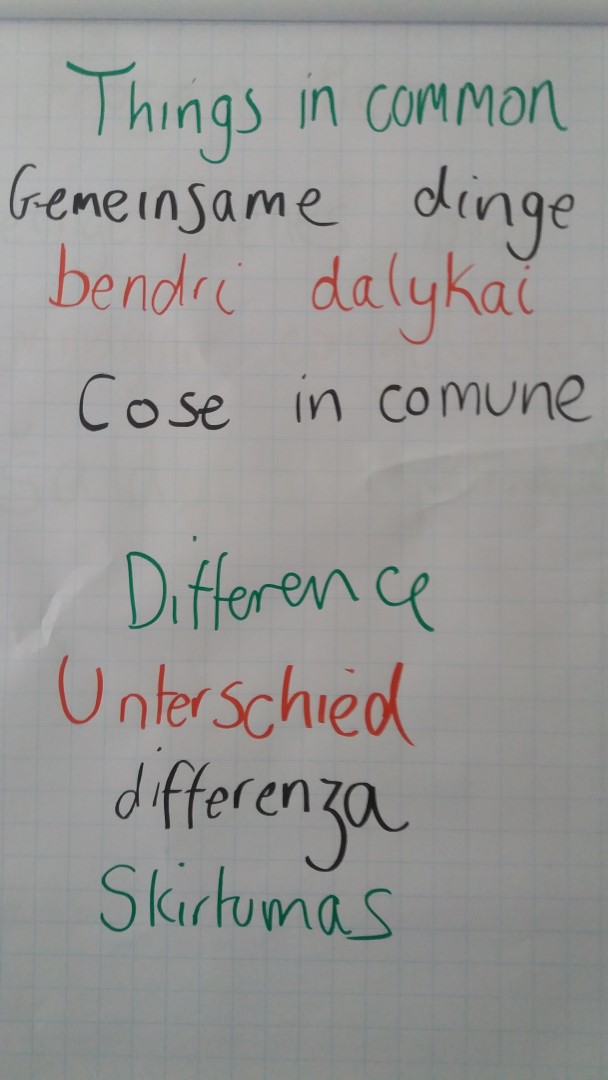 Things in common
Gemeinsame dinge
bendri dalykai
Cose in comune
Difference
Unterschied
differenza
Skirtumas